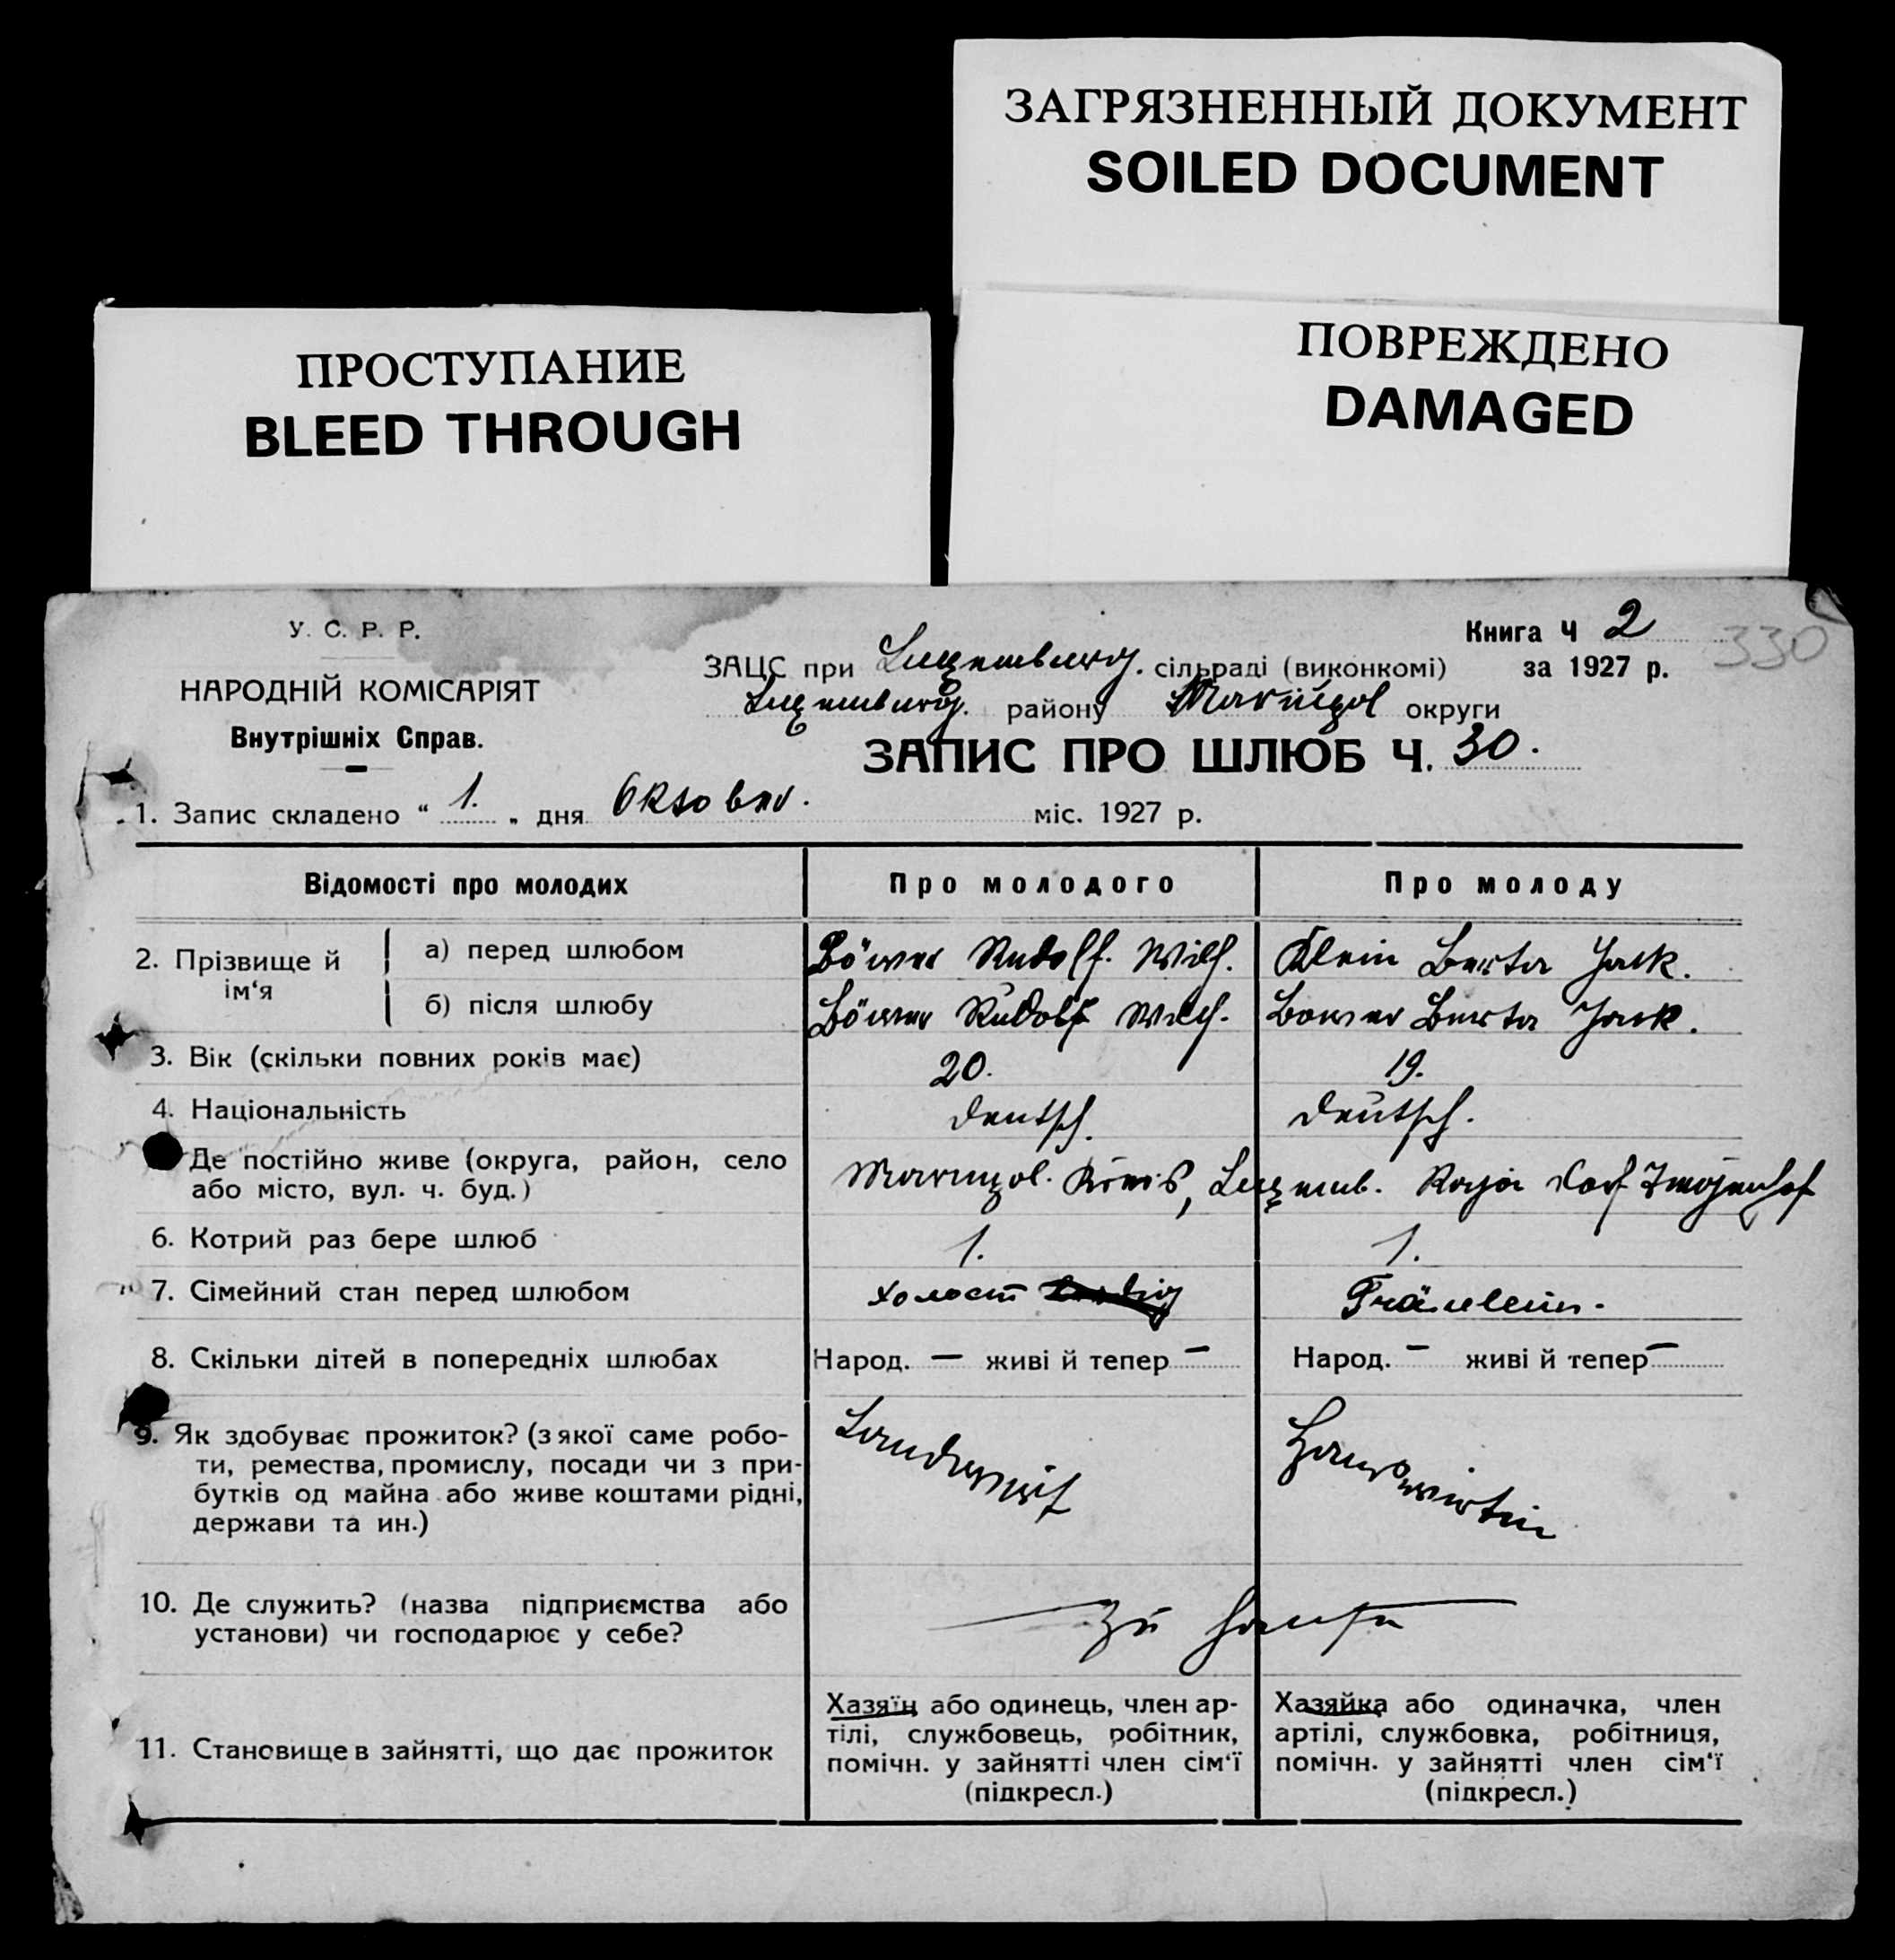 ЗАГРЯЗНЕННЫЙ ДОКУМЕНТ
SOILED DOCUMENT
ПРОСТУПАНИЕ
BLEED THROUGH
ПОВРЕЖДЕНО
DAMAGED
У. С. Р. Р.
НАРОДНІЙ КОМІСАРІЯТ
Внутрішніх Справ.
Книга Ч 2
330
ЗАЦС при Luxemburg. сільраді (виконкомі) за 1927 р.
Luxemburg. району Mariupol округи
ЗАПИС ПРО ШЛЮБ Ч. 30.
1. Запис складено “ 1. „ дня Oktober. міс. 1927 р.
Відомості про молодих Про молодого Про молоду
2. Прізвище й ім‘я
а) перед шлюбом Rudolf. Wilh. Klein Berta Jack.
б) після шлюбу Rudolf Wilh. Berta Jack.
3. Вік (скільки повних років має) 20. 19.
4. Національність deutsch. deutsch.
Де постійно живе (округа, район, село
або місто, вул. ч. буд.) Mariupol. Kreis, Luxemb. Rayon Dorf
6. Котрий раз бере шлюб 1. 1.
7. Сімейний стан перед шлюбом холост Fräulein.
8. Скільки дітей в попередніх шлюбах Народ. — живі й тепер — Народ. — живі й тепер —
9. Як здобуває прожиток? (з якої саме робо-
ти, ремества, промислу, посади чи з при-
бутків од майна або живе коштами рідні,
держави та ин.)
Landwirt
Hauswirtin
10. Де служить? (назва підприємства або
установи) чи господарює у себе?
zu Hause
11. Становище в зайнятті, що дає прожиток
Хазяїн або одинець, член ар-
тілі, службовець, робітник,
помічн. у зайнятті член сім‘ї
(підкресл.)
Хазяйка або одиначка, член
артілі, службовка, робітниця,
помічн. у зайнятті член сім‘ї
(підкресл.)